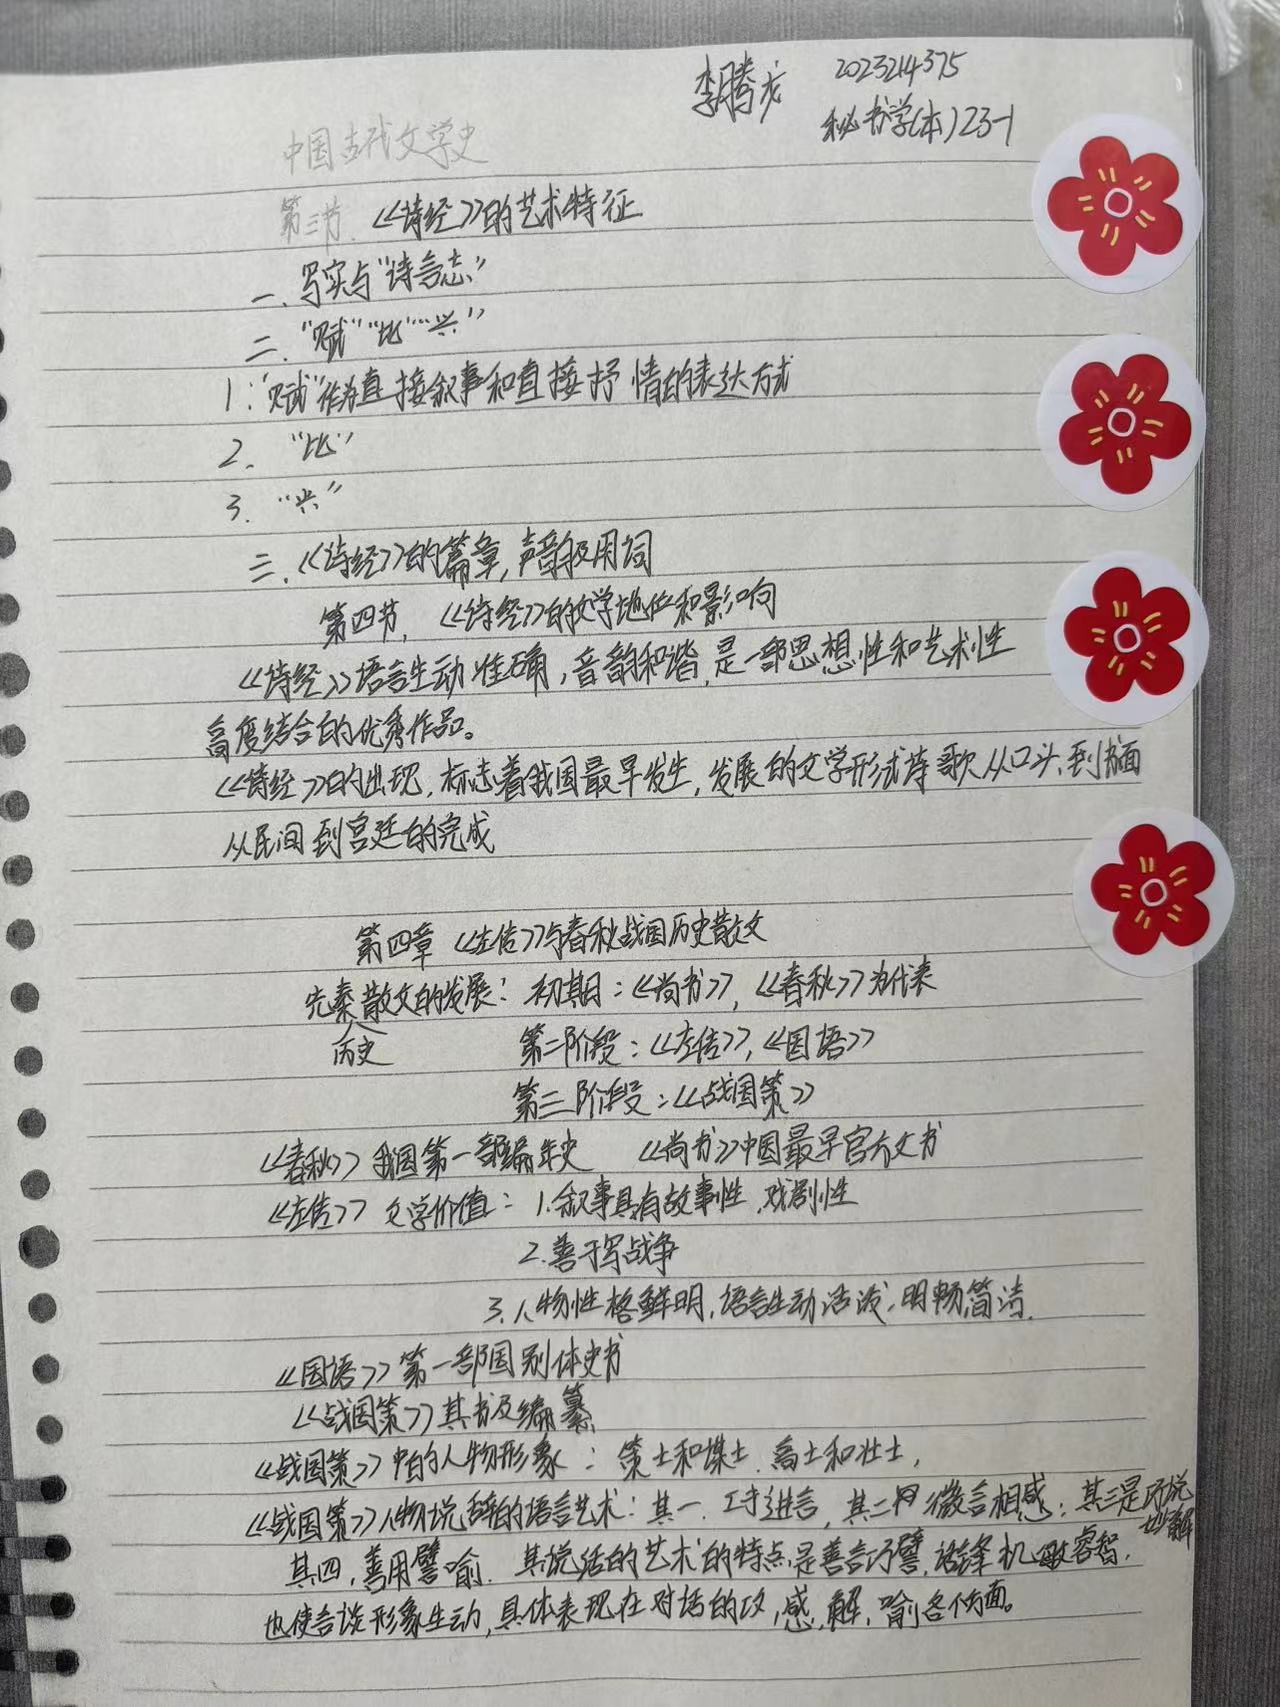 李腾龙 2023214375
秘书学(本)23-1
中国古代文学史
第三节.《诗经》的艺术特征
一、写实与“诗言志”
二、“赋”“比”“兴”
1.“赋”作为直接叙事和直接抒情的表达方式
2. “比”
3. “兴”
三、《诗经》的篇章,声韵及用词
第四节, 《诗经》的文学地位和影响
《诗经》语言生动准确,音韵和谐,是一部思想性和艺术性
高度结合的优秀作品。
《诗经》的出现,标志着我国最早发生,发展的文学形式诗歌从口头到书面
从民间到宫廷的完成
第四章《左传》与春秋战国历史散文
先秦散文的发展: 初期:《尚书》,《春秋》为代表
历史 第二阶段:《左传》,《国语》
第三阶段:《战国策》
《春秋》我国第一部编年史 《尚书》中国最早官方文书
《左传》文学价值: 1.叙事具有故事性、戏剧性
2.善于写战争
3.人物性格鲜明,语言生动活泼,明畅简洁.
《国语》第一部国别体史书
《战国策》其书及编纂
《战国策》中的人物形象: 策士和谋士、高士和壮士,
《战国策》人物说辞的语言艺术:其一、工于进言,其二 微言相感;其三是巧说
妙解
其四,善用譬喻. 其说话的艺术的特点是善言巧譬,话锋机敏睿智,
也使言谈形象生动,具体表现在对话的攻,感,解,喻各个方面。